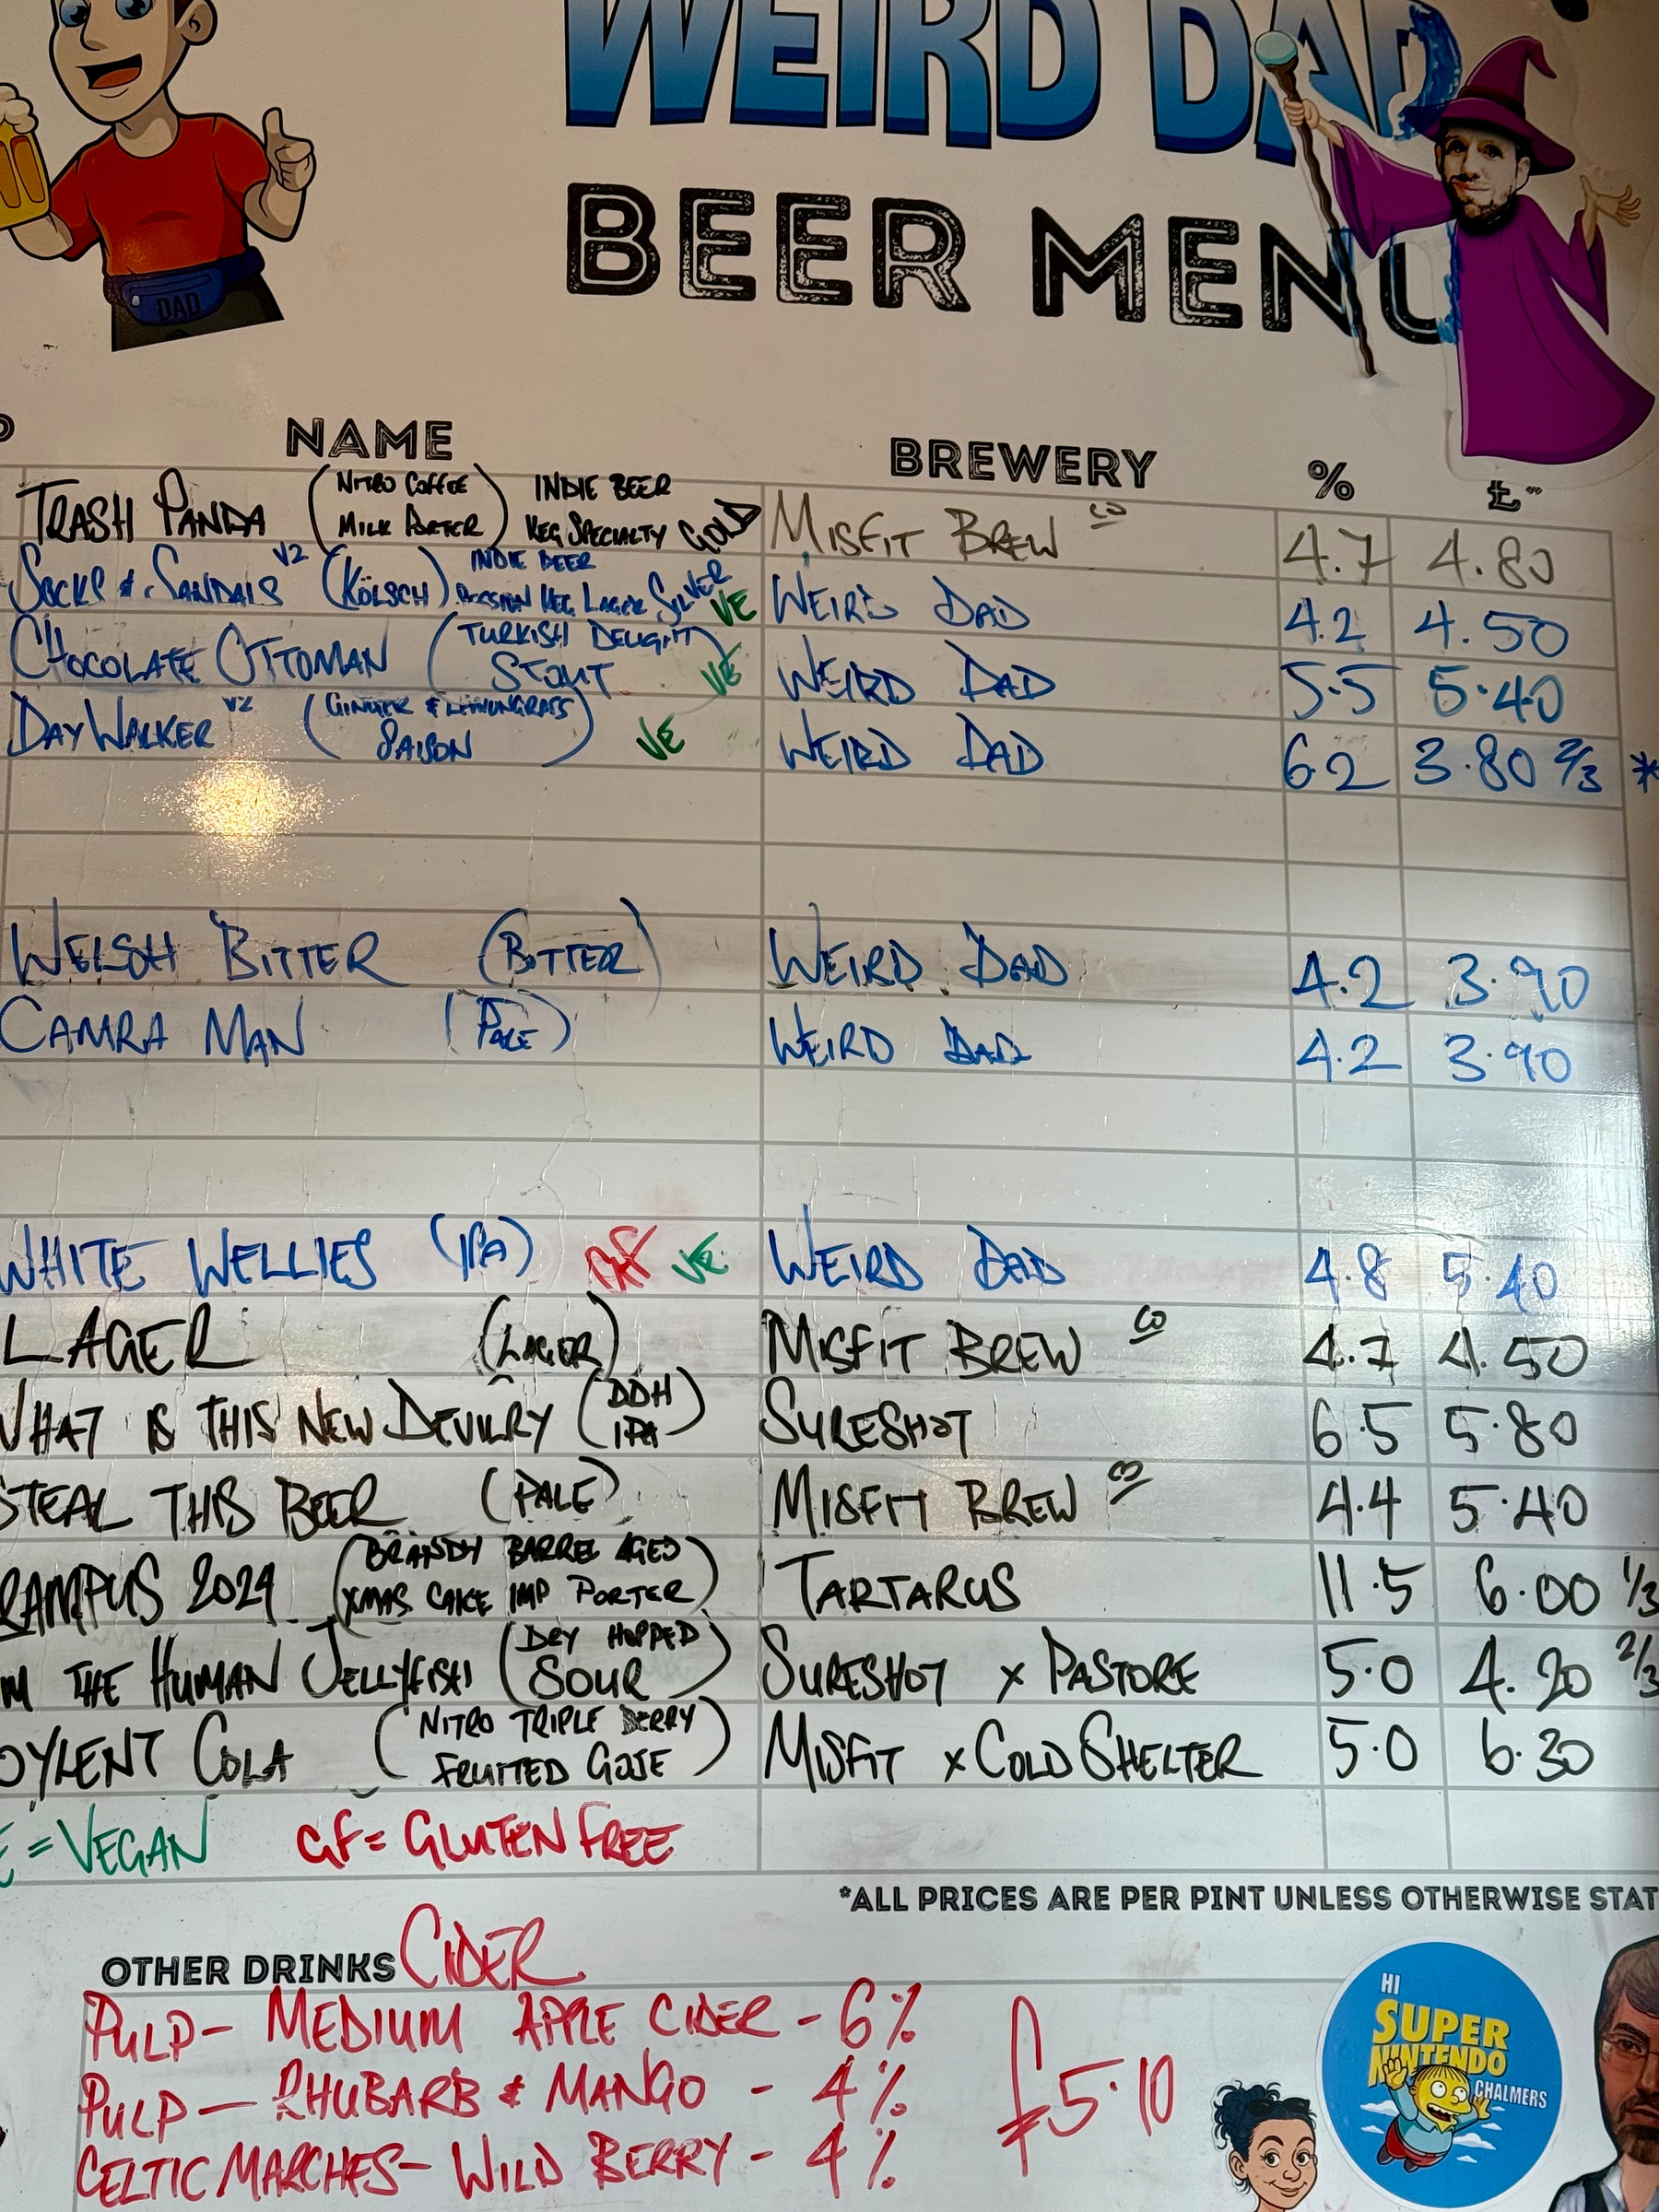 WEIRD DAD
BEER MENU
DAD
NAME BREWERY % £
TRASH PANDA (NITRO COFFEE MILK PORTER) INDIE BEER KEG SPECIALTY GOLD MISFIT BREW CO 4.7 4.80
SOCKS & SANDALS V2 (KÖLSCH) INDIE BEER SESSION KEG LAGER SILVER VE WEIRD DAD 4.2 4.50
CHOCOLATE OTTOMAN (TURKISH DELIGHT STOUT) VE WEIRD DAD 5.5 5.40
DAYWALKER V2 (GINGER & LEMONGRASS SAISON) VE WEIRD DAD 6.2 3.80 2/3 *
WELSH BITTER (BITTER) WEIRD DAD 4.2 3.90
CAMRA MAN (PALE) WEIRD DAD 4.2 3.90
WHITE WELLIES (IPA) GF VE WEIRD DAD 4.8 5.40
LAGER (LAGER) MISFIT BREW CO 4.7 4.50
WHAT IS THIS NEW DEVILRY (DDH IPA) SURESHOT 6.5 5.80
STEAL THIS BEER (PALE) MISFIT BREW CO 4.4 5.40
RAMPUS 2024 (BRANDY BARREL AGED XMAS CAKE IMP PORTER) TARTARUS 11.5 6.00 1/3
M THE HUMAN JELLYFISH (DRY HOPPED SOUR) SURESHOT x PASTORE 5.0 4.20 2/3
OYLENT COLA (NITRO TRIPLE BERRY FRUITED GOSE) MISFIT x COLD SHELTER 5.0 6.30
E = VEGAN GF = GLUTEN FREE
*ALL PRICES ARE PER PINT UNLESS OTHERWISE STAT
OTHER DRINKS CIDER
PULP - MEDIUM APPLE CIDER - 6%
PULP - RHUBARB & MANGO - 4% £5.10
CELTIC MARCHES - WILD BERRY - 4%
HI
SUPER
NINTENDO
CHALMERS